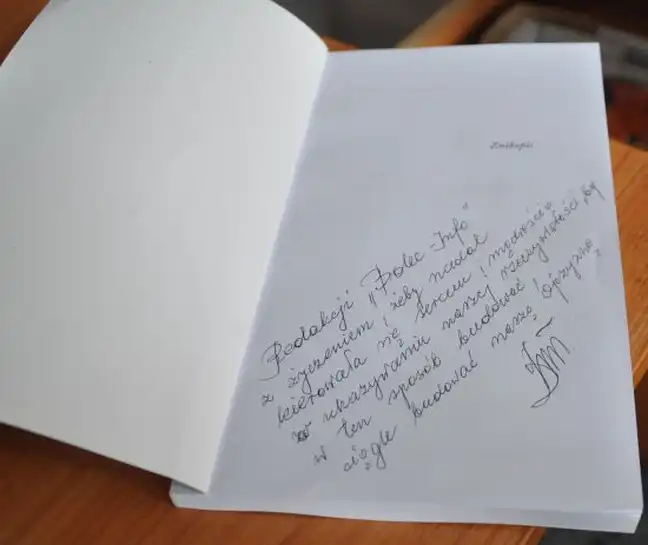 Redakcji "Bobec-Info"
z życzeniem, żeby nadal
kierowała się sercem i mądrością
w ukazywaniu naszej rzeczywistości, by
w ten sposób budować i
ciągle budować naszą Ojczyznę